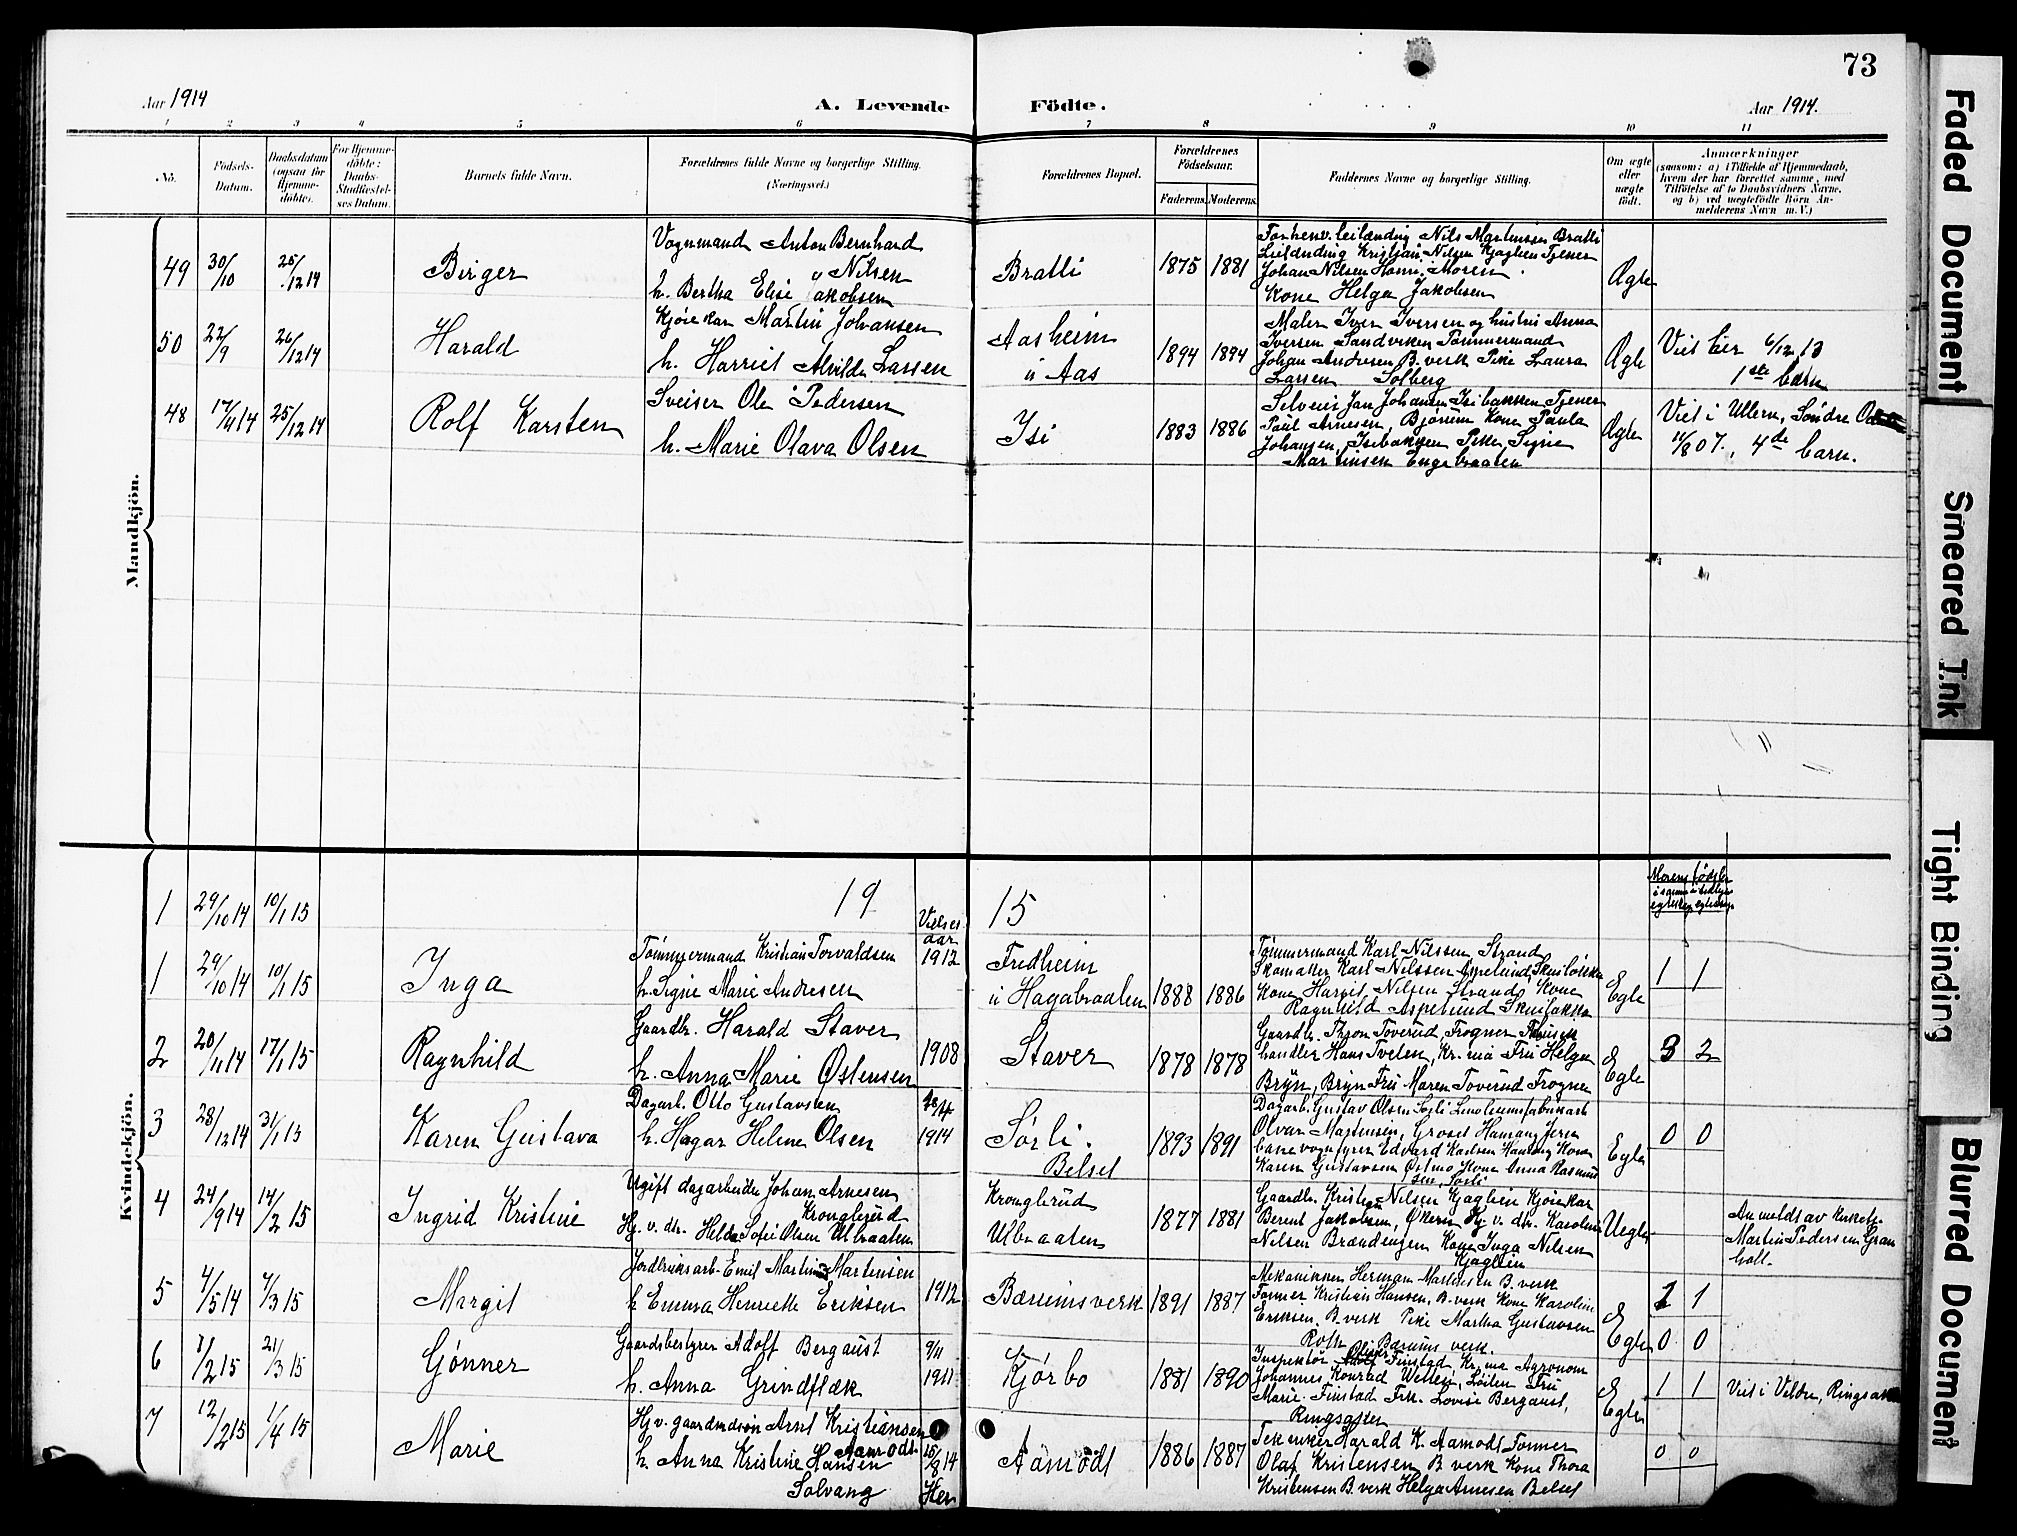 73
Aar 1914
A. Levende
Födte.
Aar 1914.
1 2 3 4 5 6 7 8 9 10 11
No.
Födsels-
Datum.
Daabsdatum
(ogsaa for
Hjemme-
döbte).
For Hjemme-
döbte:
Daabs-
Stadfæstel-
ses Datum.
Barnets fulde Navn.
Forældrenes fulde Navne og borgerlige Stilling.
(Næringsvei.)
Forældrenes Bopæl.
Forældrenes
Födselsaar.
Faderens. Moderens.
Faddernes Navne og borgerlige Stilling.
Om ægte
eller
uægte
født.
Anmærkninger
(saasom: a) i Tilfælde af Hjemmedaab,
hvem der har forrettet samme, med
Tilföielse af to Daabsvidners Navne,
og b) ved uægtefödte Börn An-
melderens Navn m. V.)
Mandkjön.
49 30/10 25/12 14 Birger
Vognmand Anton Bernhard
Nilsen
h. Bertha Elise Jakobsen
Bratli 1875 1881
Forhenv. leilænding Nils Martinsen Bratli
Leilænding Kristian Nilsen Kjaglien Tjener
Johan Nilsen Hans. Moren
Kone Helga Jakobsen
Ægte
50 22/9 26/12 14 Harald
Kjørekar Martin Johansen
h. Harriet Alvilde Larsen
Aasheim
u Aas
1894 1894
Maler Iver Iversen og hustru Anna
Iversen Sandviken Tømmermand
Johan Andresen B. verk Pike Laura
Larsen Solberg
Ægte
Viet her 6/12 13
1ste barn
48 17/11 14 25/12 14 Rolf Karsten
Sveiser Ole Pedersen
h. Marie Olava Olsen
Isi 1883 1886
Selveier Jan Johansen Isibakken Tjener
Paul Arnesen, Bjørum Kone Paula
Johansen, Isibakken Pike Signe
Martinsen Engebraaten
Ægte
Viet i Ullern, Søndre
11/8 07, 4de barn.
Kvindekjön.
1 29/10 14 10/1 15
19 15
Vielses
aar
Morens fødsler
1 29/10 14 10/1 15 Inga
Tømmermand Kristian Torvaldsen
h. Signe Marie Andresen
1912
Fredheim
u Hagabraaten
1888 1886
Tømmermand Karl Nilssen Strand
Skomaker Karl Nilssen Aspelund, Skuibakka
Kone Margit Nilsen Strand, Kone
Ragnhild Aspelund Skuibakka
Egte
1 1
2 20/11 14 17/1 15 Ragnhild
Gaardbr. Harald Staver
h. Anna Marie Østensen
1908
Staver 1878 1878
Gaardb. Thron Toverud, Frogner
handler Hans Tveten, Kr.nia Fru Helga
Bryn, Bryn Fru Maren Toverud Frogner
Egte
3 2
3 28/12 14 31/1 15 Karen Gustava
Dagarb. Otto Gustavsen
h. Hagar Helene Olsen
1914
Sørli.
Belset
1893 1891
Dagarb. Gustav Olsen Sørli Linoleumsfabrikarb
Olvar Martinsen, Groset Hamang Jern
banevognfyrer Edvard Karlsen Hamang Kone
Karen Gustavsen Østmo Kone Anna Rasmus
sen, Sørli
Egte
0 0
4 24/9 14 14/2 15 Ingrid Kristine
Ugift dagarbeider Johan Arnesen
Kronglerud
Hj. v. dtr. Helda Sofie Olsen Ulbraaten
Kronglerud
Ulbraaten
1877 1881
Gaardbr. Kristian Nilsen Kjaglien Kjørekar
Bernt Jakobsen, Økern Hj. v. dtr. Karoline
Nilsen Brændengen Kone Inga Nilsen
Kjaglien
Uegte
Anmeldt av Kirketj.
Martin Pedersen Gran
holt.
5 4/5 14 7/3 15 Margit
Jordbruksarb. Emil Martin Martinsen
h Emma Henriette Eriksen
1912
Bærumsverk 1891 1887
Mekanikker Herman Martinsen B. verk
Former Kristian Hansen, B. verk Kone Karoline
Eriksen. B. verk Pike Martha Gustavsen
Bærums verk.
Egte
2 1
0 0
6 1/2 15 21/3 15 Gønner
Gaardsbestyrer Adolf Bergaust
h. Anna Grindflæk
9/11
1911
Kjørbo 1881 1890
Inspektør Finstad Kr.nia Agronom
Johannes Konrad Wetten, Løiten Fru
Marie Finstad Frk. Lovise Bergaust,
Ringsaker
Egte
1 1
Viet i Veldre, Ringsaker
7 12/2 15 1/4 15 Marie
Hj. v. gaardmdsøn Arnt Kristiansen
Aamodt.
h. Anna Kristine Hansen
Solvang
15/8 14
Her
Aamodt 1886 1887
Tekniker Harald K. Aamodt Former
Olaf Kristensen B verk Kone Thora
Kristensen B. verk Helga Arnesen Belset
0 0
Faded Document
Smeared Ink
Tight Binding
Blurred Document